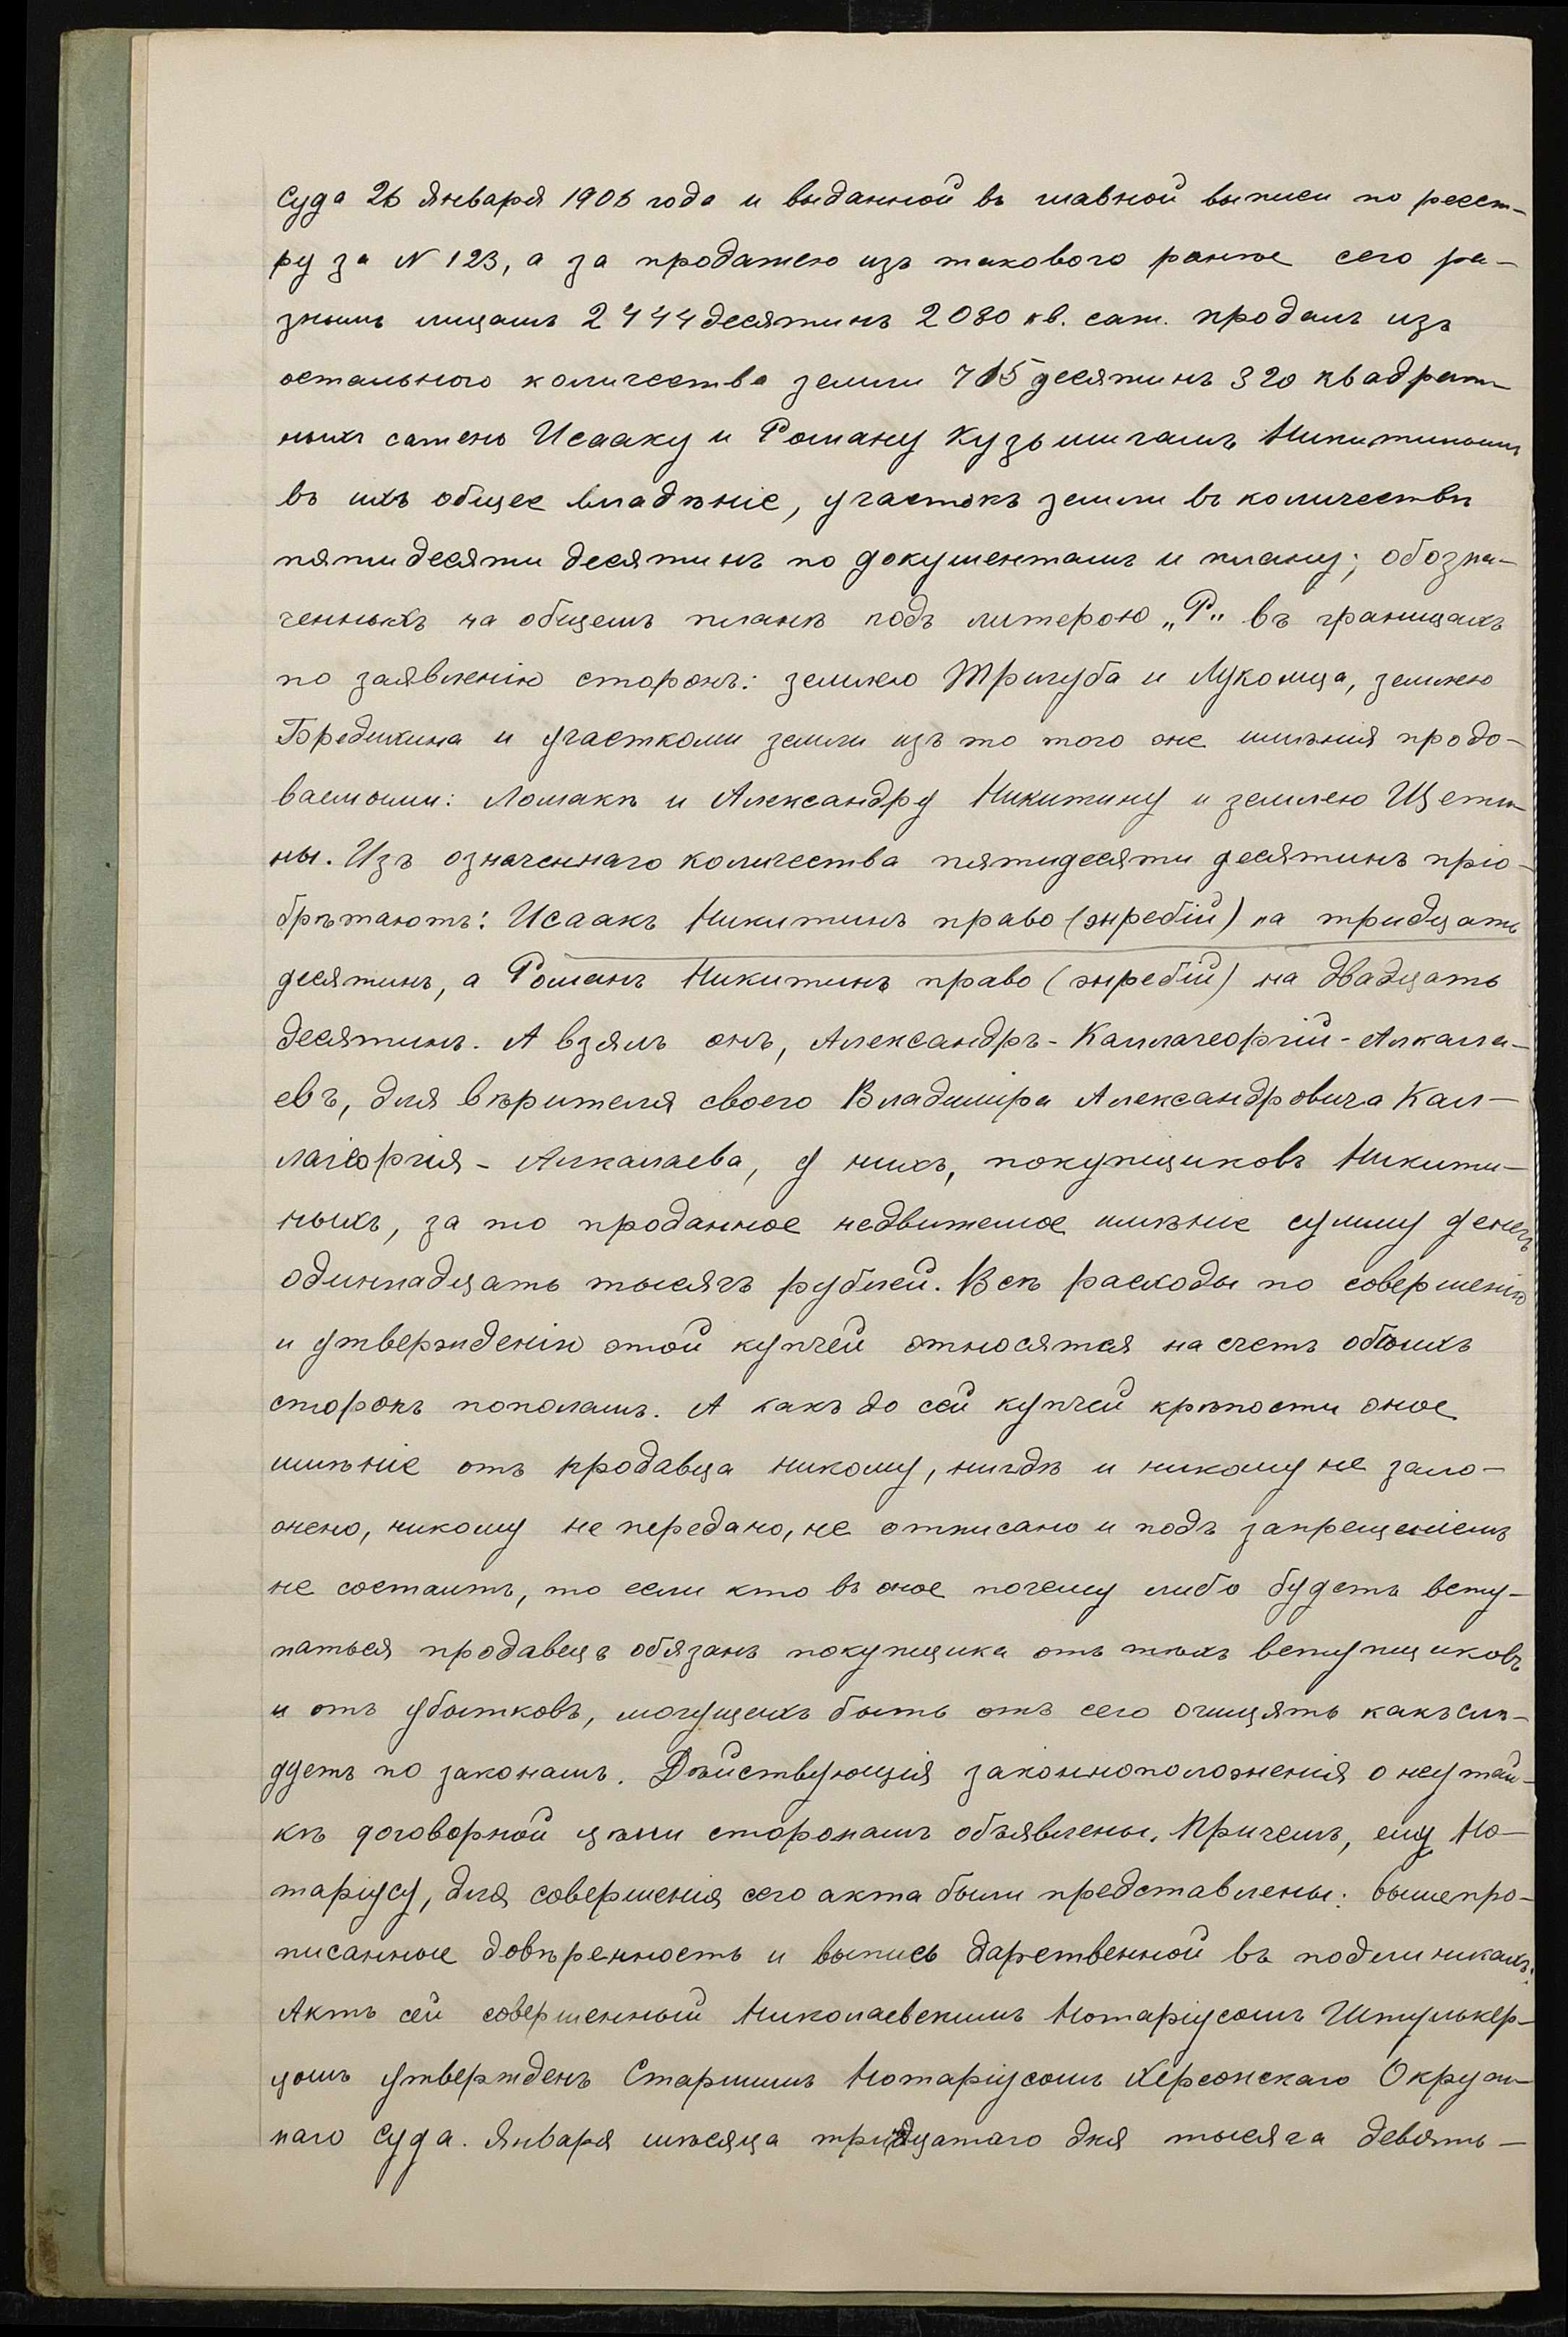 Суда 26 Января 1906 года и выданной въ главной выписи по реест-
ру за N 123, а за продажею изъ такового ранѣе сего ра-
знымъ лицамъ 2444 десятинъ 2080 кв. саж. продалъ изъ
остального количества земли 715 десятинъ 320 квадрат-
ныхъ сажень Исааку и Роману Кузьмичамъ Никитинымъ
въ ихъ общее владѣніе, участокъ земли въ количествѣ
пятидесяти десятинъ по документамъ и плану; обозна-
ченныхъ на общемъ планѣ подъ литерою „Р" въ границахъ
по заявленію сторонъ: землею Тригуба и Лукомца, землею
Бредихина и участками земли изъ то того же имѣния прода-
ваемыми: Ломакѣ и Александру Никитину и землею Щети-
ны. Изъ означеннаго количества пятидесяти десятинъ прiо-
брѣтаютъ: Исаакъ Никитинъ право (жребій) на тридцать
десятинъ, а Романъ Никитинъ право (жребій) на двадцать
десятинъ. А взялъ онъ, Александръ-Каллагеоргій-Алкала-
евъ, для вѣрителя своего Владиміра Александровича Кал-
лагеоргія-Алкалаева, у нихъ, покупщиковъ Никити-
ныхъ, за то проданное недвижемое имѣніе сумму денегъ
одиннадцать тысячъ рублей. Всѣ расходы по совершенію
и утвержденію этой купчей относятся на счетъ обоихъ
сторонъ пополамъ. А какъ до сей купчей крѣпости оное
имѣніе отъ продавца никому, нигдѣ и никому не зало-
жено, никому не передано, не отписано и подъ запрещеніемъ
не состоитъ, то если кто въ оное почему либо будетъ всту-
паться продавецъ обязанъ покупщика отъ тѣхъ вступщиковъ
и отъ убытковъ, могущихъ быть отъ сего очищять какъ слѣ-
дуетъ по законамъ. Дѣйствующія законноположенія о неутай-
кѣ договорной цѣны сторонамъ объявлены. Причемъ, ему Но-
таріусу, для совершенія сего акта были представлены: вышепро-
писанные довѣренность и выпись дарственной въ подлинникахъ.
Актъ сей совершенный Николаевскимъ Нотаріусомъ Штулькер-
цомъ утвержденъ Старшимъ Нотаріусомъ Херсонскаго Окруж-
наго Суда. Января мѣсяца тридцатаго дня тысяча девять-